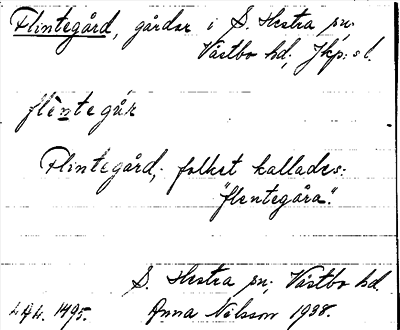 Flintegård, gårdar i S. Hestra sn.
Västbo hd, Jkp:s l.
flèntegår
Flintegård, folket kallades:
"flentegåra".
S. Hestra sn, Västbo hd.
Anna Nilsson 1938.
1495.